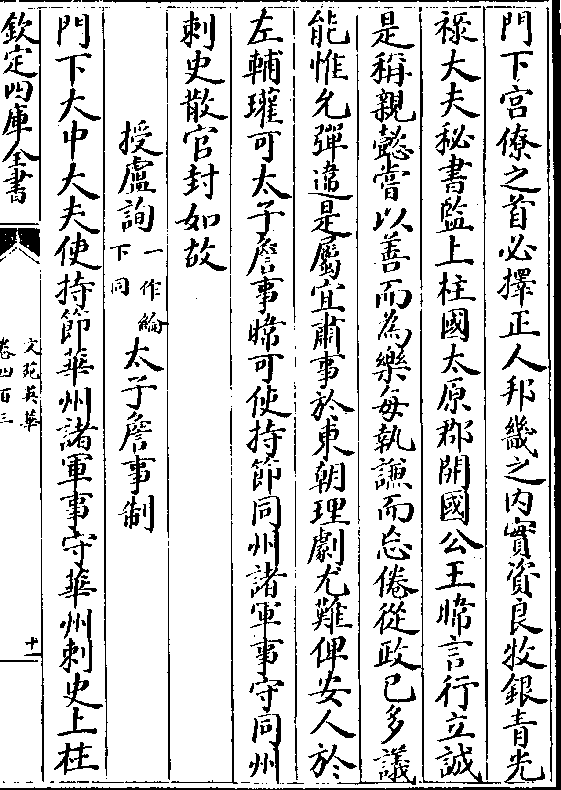 門下宫僚之首必擇正人邦畿之内實資良牧銀青光
禄大夫秘書監上柱國太原郡開國公王暐言行立誠
是稱親懿嘗以善而為樂每執謙而忘倦從政已多議
能惟允彈違是屬宜肅事於東朝理劇尤難俾安人於
左輔瓘可太子詹事暐可使持節同州諸軍事守同州
刺史散官封如故
授盧詢一作綸下同太子詹事制
門下大中大夫使持節華州諸軍事守華州刺史上柱
欽定四庫全書
文苑英華
卷四百三
十